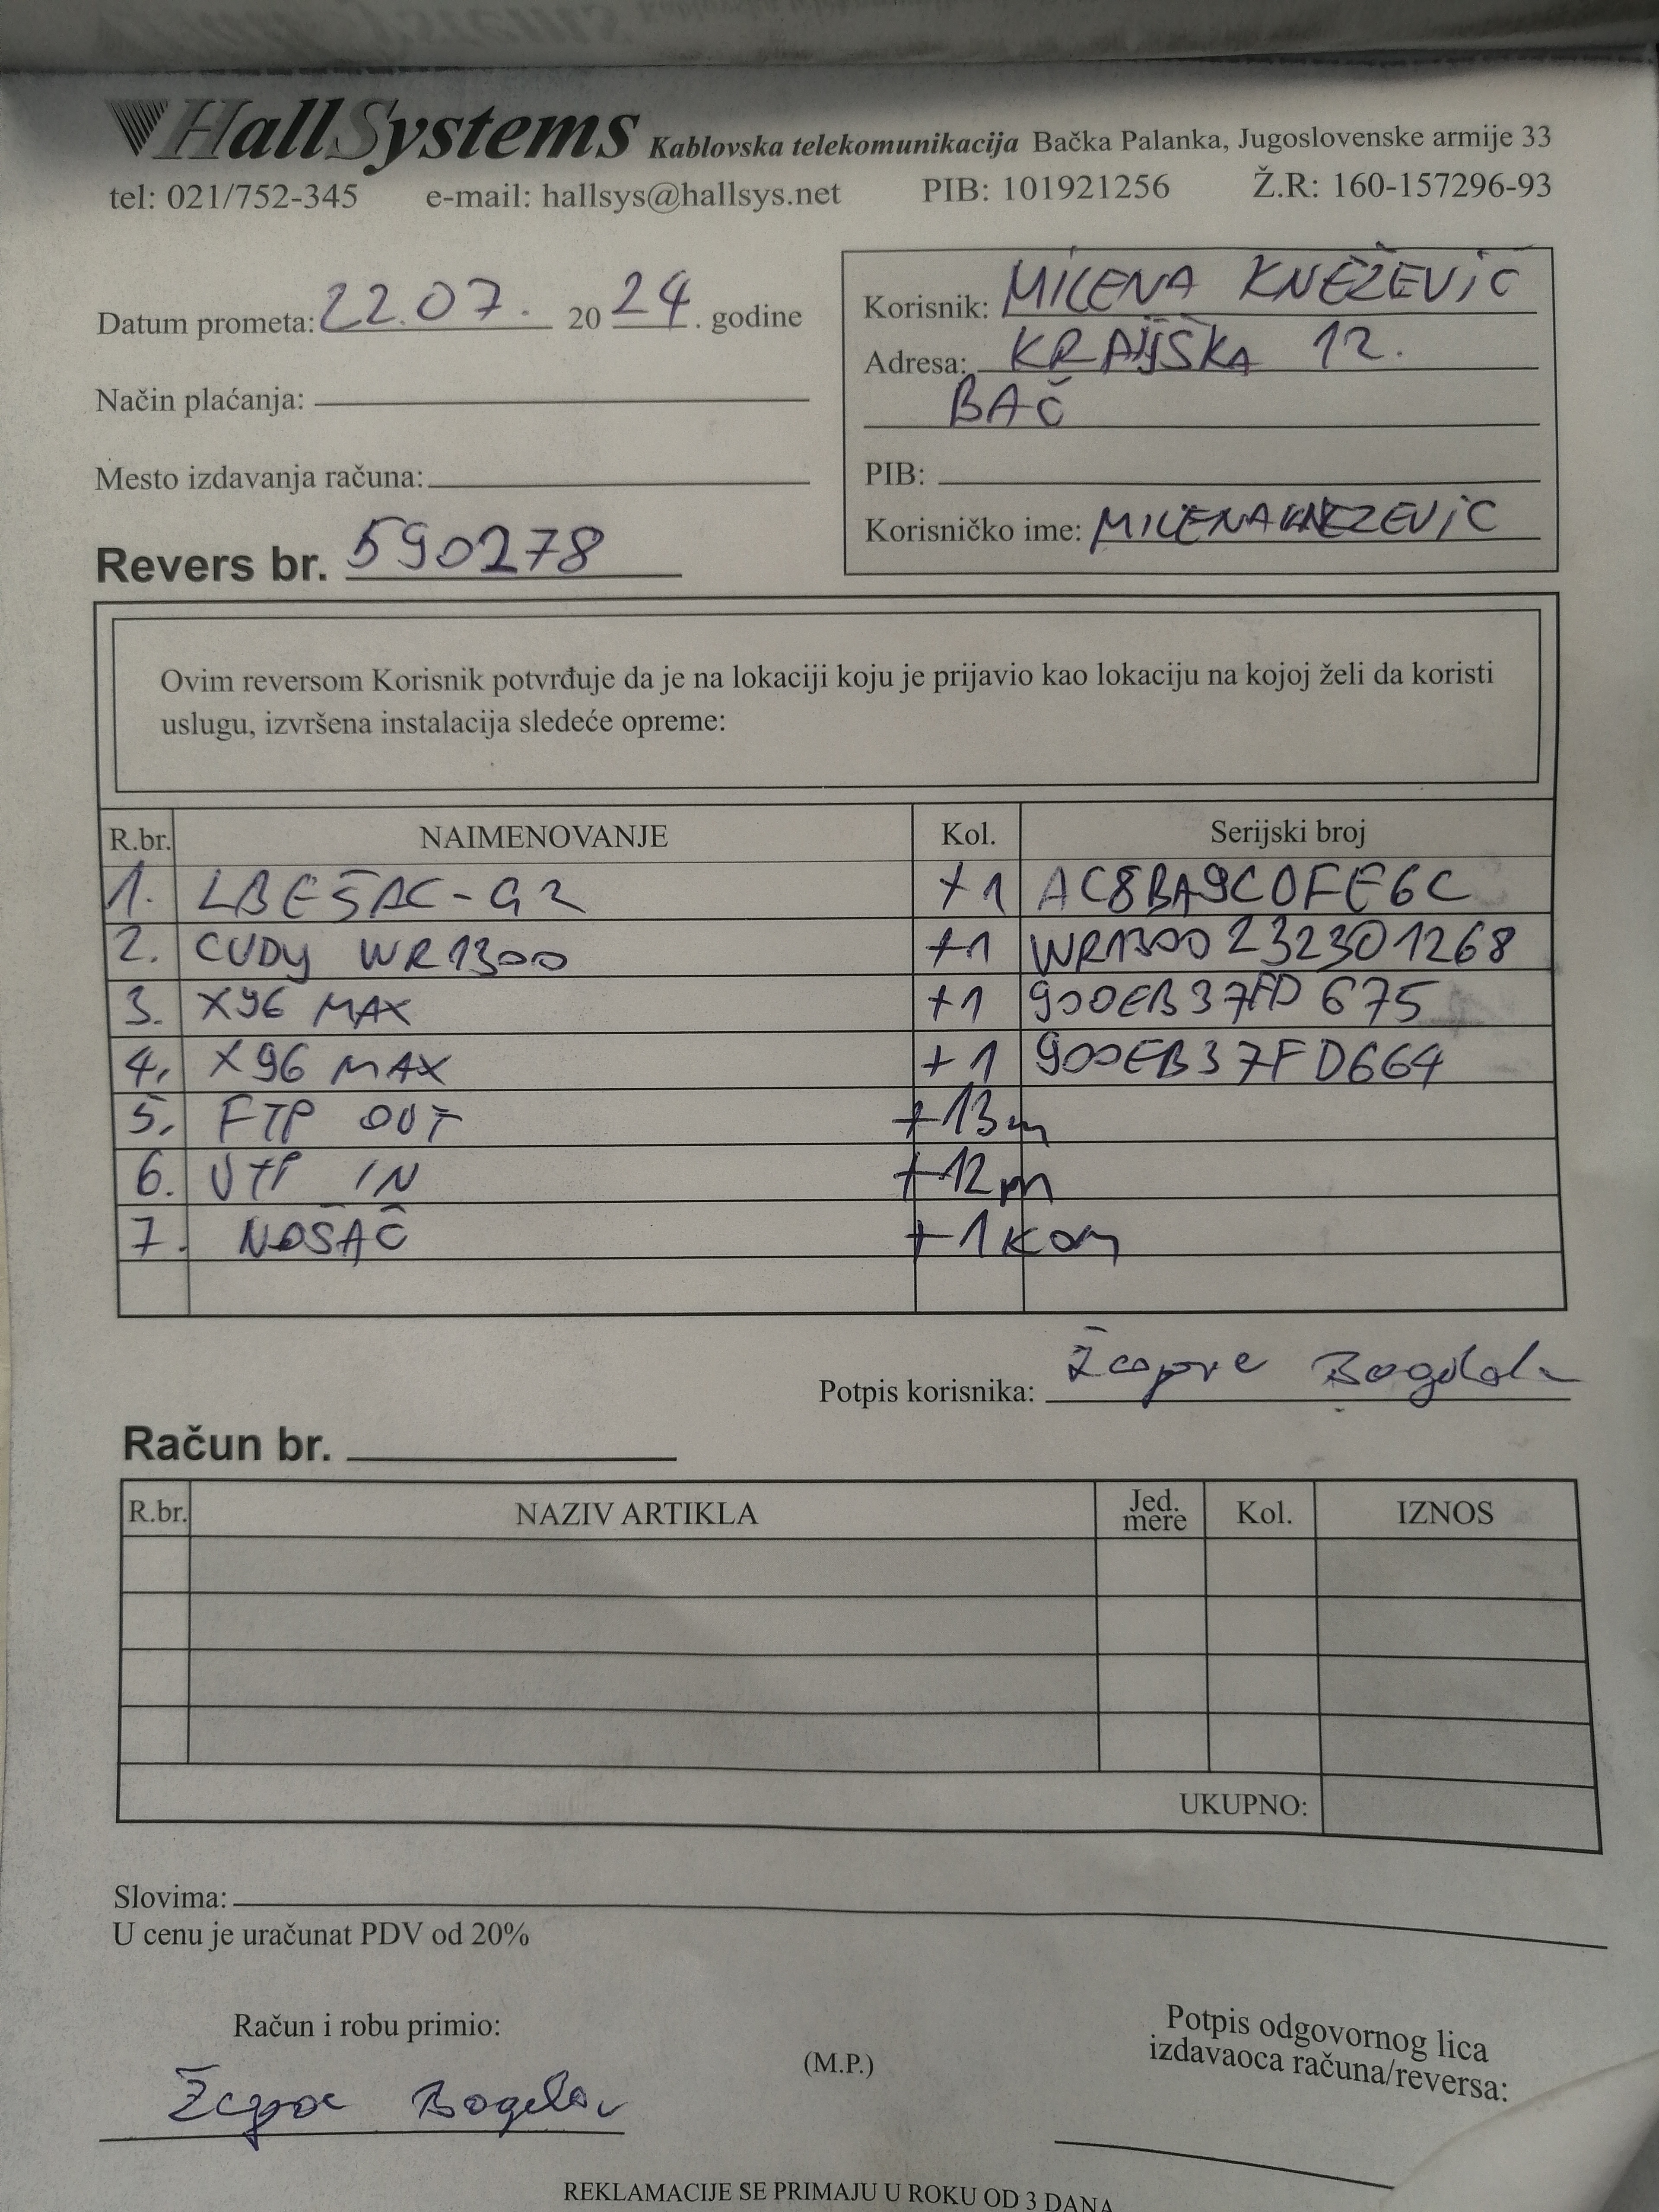 HallSystems Kablovska telekomunikacija Bačka Palanka, Jugoslovenske armije 33
tel: 021/752-345 e-mail: hallsys@hallsys.net PIB: 101921256 Ž.R: 160-157296-93
Datum prometa: 22.07. 2024. godine
Način plaćanja:
Mesto izdavanja računa:
Revers br. 590278
Korisnik: MILENA KNEŽEVIĆ
Adresa: KRAJIŠKA 12.
BAČ
PIB:
Korisničko ime: MILENAKNEZEVIC
Ovim reversom Korisnik potvrđuje da je na lokaciji koju je prijavio kao lokaciju na kojoj želi da koristi
uslugu, izvršena instalacija sledeće opreme:
R.br. NAIMENOVANJE Kol. Serijski broj
1. LBE5AC-G2 +1 AC8BA9C0FE6C
2. CUDY WR1300 +1 WR1300232301268
3. X96 MAX +1 900EB37FD675
4. X96 MAX +1 900EB37FD664
5. FTP OUT +13m
6. UTP IN +12m
7. NOSAČ +1 kom
Potpis korisnika:
Račun br.
R.br. NAZIV ARTIKLA Jed. mere Kol. IZNOS
UKUPNO:
Slovima:
U cenu je uračunat PDV od 20%
Račun i robu primio:
(M.P.)
Potpis odgovornog lica
izdavaoca računa/reversa:
REKLAMACIJE SE PRIMAJU U ROKU OD 3 DANA